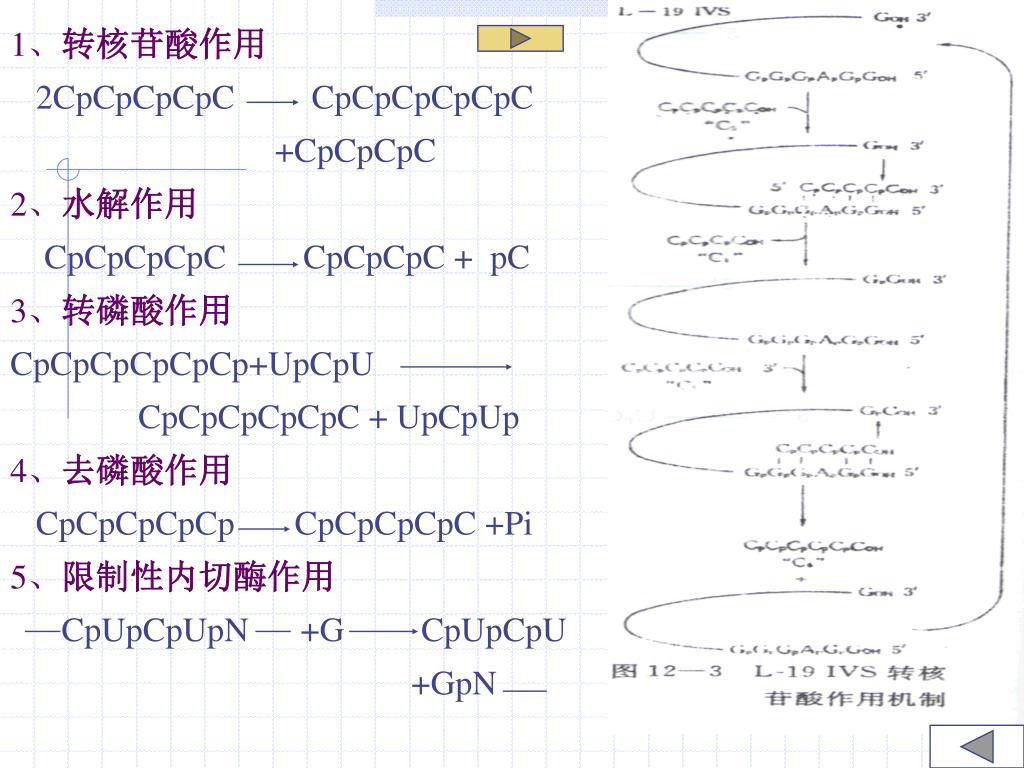 1、转核苷酸作用
2CpCpCpCpC → CpCpCpCpCpC
+CpCpCpC
2、水解作用
CpCpCpCpC → CpCpCpC + pC
3、转磷酸作用
CpCpCpCpCpCp+UpCpU →
CpCpCpCpCpC + UpCpUp
4、去磷酸作用
CpCpCpCpCp → CpCpCpCpC +Pi
5、限制性内切酶作用
—CpUpCpUpN— +G → CpUpCpU
+GpN—
L—19 IVS
GOH 3′
GpGpGpApGpGOH 5′
3′
5′ CpCpCpCpCOH 3′
5′
3′
5′
3′
3′
5′
3′
5′
图 12—3 L-19 IVS 转核
苷酸作用机制